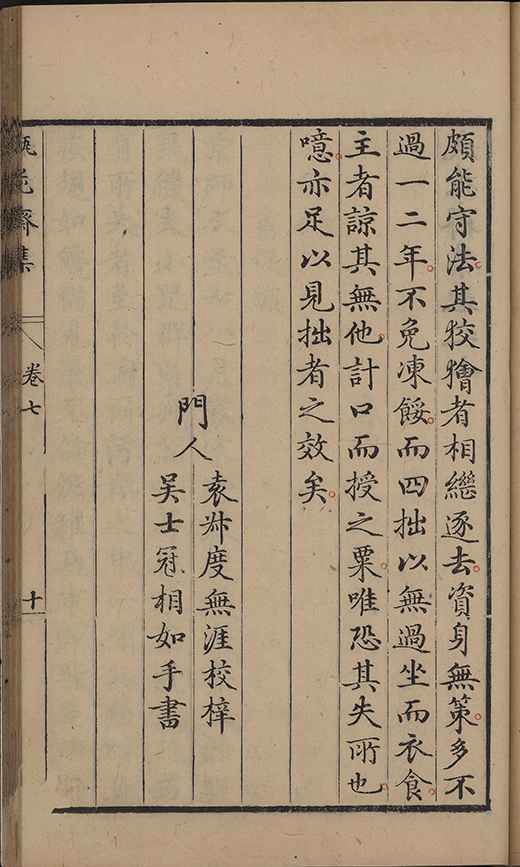 頗能守法其狡獪者相繼逐去資身無策多不
過一二年不免凍餒而四拙以無過坐而衣食
主者諒其無他計口而授之粟唯恐其失所也
噫亦足以見拙者之效矣
門人
袁叔度無涯校梓
吳士冠相如手書
瓶花齋集
卷七
十